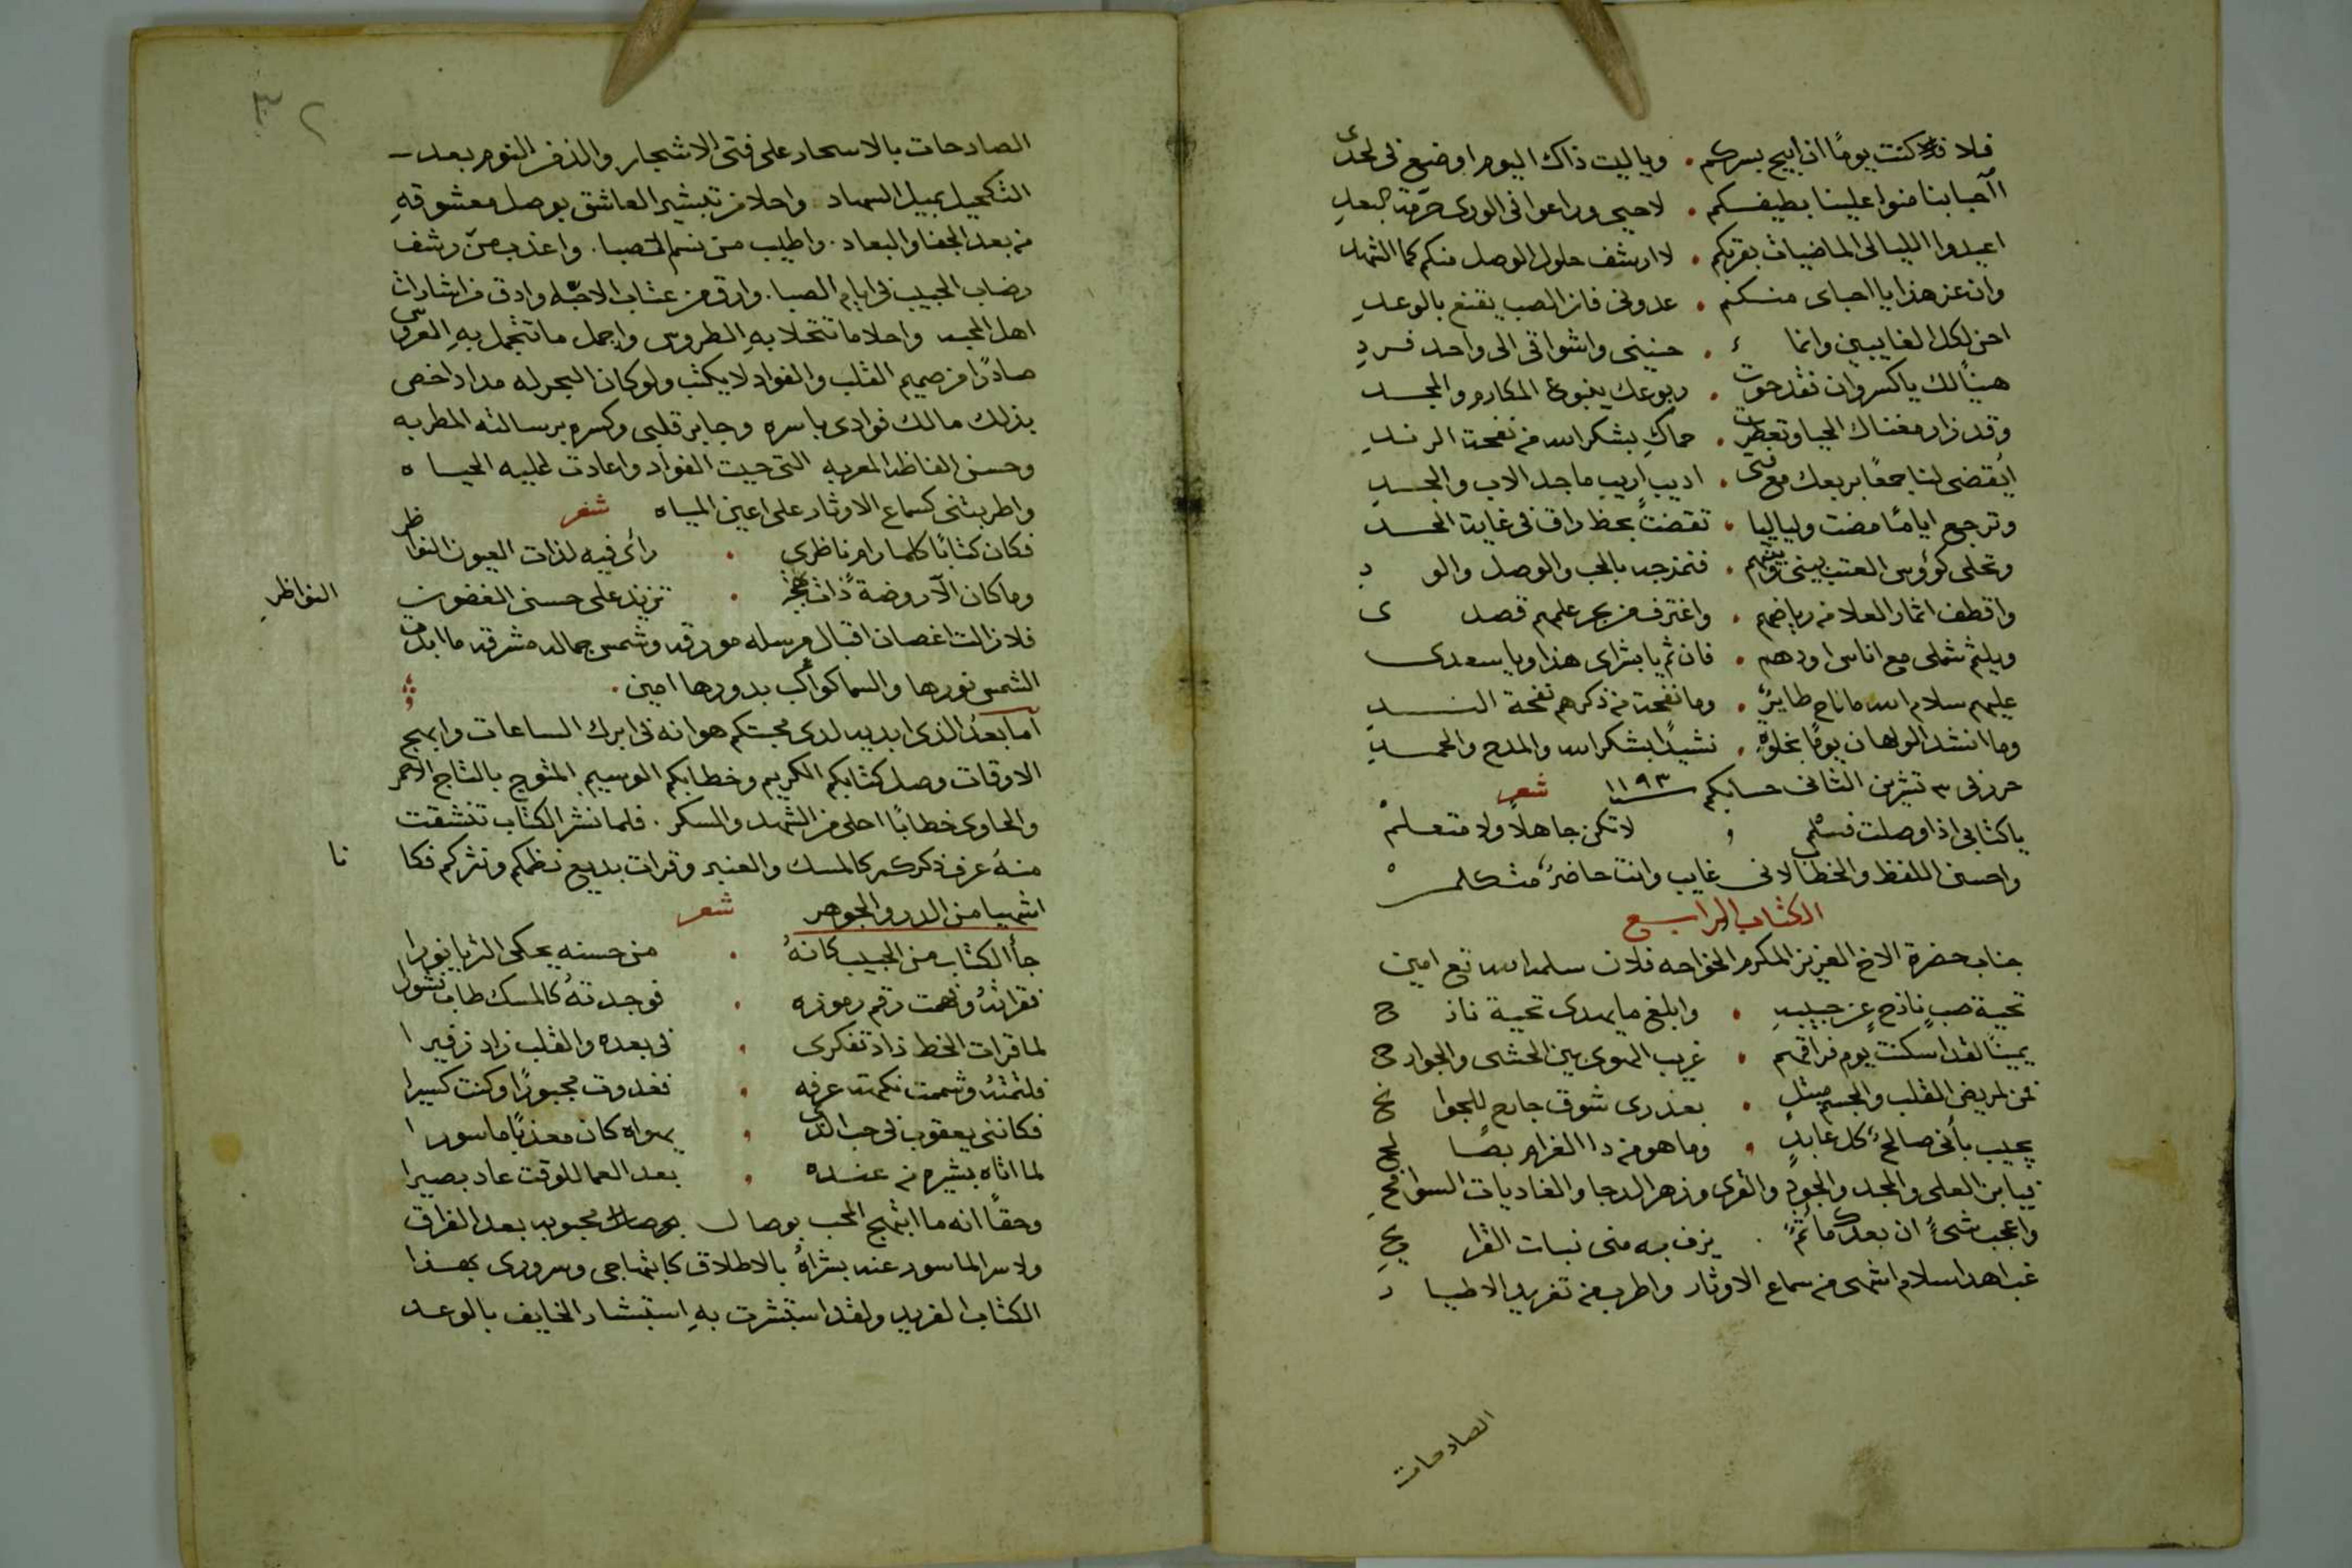 فلا كنت يومًا ان ابيح بسركم . ويا ليت ذاك اليوم اوضع فى لحدى
أأحبابنا منوا علينا بطيفكم . لاحيى وراعوا فى الورى حرمة البعدِ
اعيدوا الليالى الماضيات بقربكم . لارشف حلو الوصل منكم كما الشهد
وان عز هذا يا احباى منكم . عدونى فان الصب يقنع بالوعدِ
احن لكل الغايبين وانما . حنينى واشواقى الى واحد فردِ
هنيًا لك يا كسروان فقد حوت . ربوعك ينبوع المكارم والمجد
وقد زار مغناك الحيا وتعطرت . حماكِ بشكر الله من نفحة الرندِ
ايقضى لنا جمعًا بربعك مع فتى . اديبٍ اريبٍ ماجد الاب والجدِ
وترجع ايامًا مضت ولياليا . تقضت بحظ راق فى غاية الحد
وتجلى كؤوس العتب بينى وبينهم . فتمزجه بالحب والوصل والود
واقطف اثمار العلا من رياضهم . واغترف من بحر علمهم قصدى
ويلثم شملى مع اناس اودهم . فان تم يا بشراى هذا ويا سعدى
عليهم سلام الله ما ناح طايرٌ . وما نفحت من ذكرهم نفحة الندِ
وما انشد الولهان يومًا بخلوةٍ . نشيدًا بشكر الله والمدح والحمدِ
حرز فى ٣ تشرين الثانى حسابكم سنة ١١٩٣ شعر
يا كتابى اذا وصلت فسلم , لا تكن جاهلًا ولا متعلمْ
واحسن اللفظ والخطا لانى غايب وانت حاضرٌ متكلمْ
الكتاب الرابع
جناب حضرة الاخ العزيز المكرم الخواجه فلان سلمه الله تع امين
تحية صبٍ نازحٍ عن حبيبهِ . وابلغ ما يهدى تحية نازح
يمينًا لقد اسكنت يوم فراقهم . غريب الهوى بين الحشى والجوارح
فمن لمريض القلب والجسم مبتلٍ . بعذرى شوق جامع للجوانح
يجيب بأنى صالحٌ كل عابدٍ . وما هو من دا الغرام بصالح
فيا بن العلى والمجد والجودِ والقرى وزهر الدجا والغاديات السوافحِ
واعجب شىءً ان بعدك ما تمً . يزف به منى نبات القرايح
غب اهدا سلام اشهى من سماع الاوتار واطرب من تغريد الاطيار
الصادحات
٣٢
الصادحات بالاسحار على فتى الاشجار والذ من النوم بعد
التكحيل بميل السهاد. واحلا من تبشير العاشق بوصل معشوقهِ
من بعد الجفا والبعاد. واطيب من نسم الصبا. واعذب من رشف
رضاب الحبيب فى ايام الصبا. وارق من عتاب الاحبه وادق من اشارات
اهل المحبه واحلا ما تتحلا بهِ الطروس واجمل ما تتجمل بهِ العروس
صادرًا من صميم القلب والفواد لا يكتب ولو كان البحر له مداد اخص
بذلك مالك فوادى باسره وجابر قلبى وكسره برسالته المطربه
وحسن الفاظه المعربه التى حيت الفواد واعادت عليه الحياه
واطربتنى كسماع الاوتار على اعين المياه شعر
فكان كتابًا كلما رام ناظرى . راى فيه لذات العيون النواظر
النواظرِ
وما كان الا روضة ذات . تزيد على حسن الغصون
فلا زالت اغصان اقبال مرسله مورقه وشمس جماله مشرقه ما ابدت
الشمس نورها والسما كواكب بدورها امين.
اما بعد الذى ابديه لدى محبتكم هو انه فى ابرك الساعات وابهج
الاوقات وصل كتابكم الكريم وخطابكم الوسيم المتوج بالتاج الاحمر
والحاوى خطابًا احلى من الشهد والسكر. فلما نشر الكتاب تنشقت
منهُ عرف ذكركم كالمسك والعنبر وقرات بديع نظمكم ونثركم فكا نا
اشهيا من الدر والجوهر شعر
جأ الكتاب من الحبيب كانهُ . من حسنه يحكى الثريا نورا
فقراتهُ وفهمت رقم رموزه . فوجدتهُ كالمسك طاب نشورا
لما قرات الخط زاد تفكرى . فى بعده والقلب زاد زفيرا
فلثمته وشممت نكهة عرفه . فغدوت مجبورًا وكنت كسيرا
فكاننى يعقوب فى حب الذى . بهواه كان معذبًا ماسورا
لما اتاه بشيره من عنده . بعد العما للوقت عاد بصيرا
وحقًا انه ما ابتهج المحب بوصال محبوبه بعد الفراق
ولا سر الماسور عند بشراهُ بالاطلاق كابتهاجى وسرورى بهذا
الكتاب الفريد ولقد استبشرت بهِ استبشار الخايف بالوعد